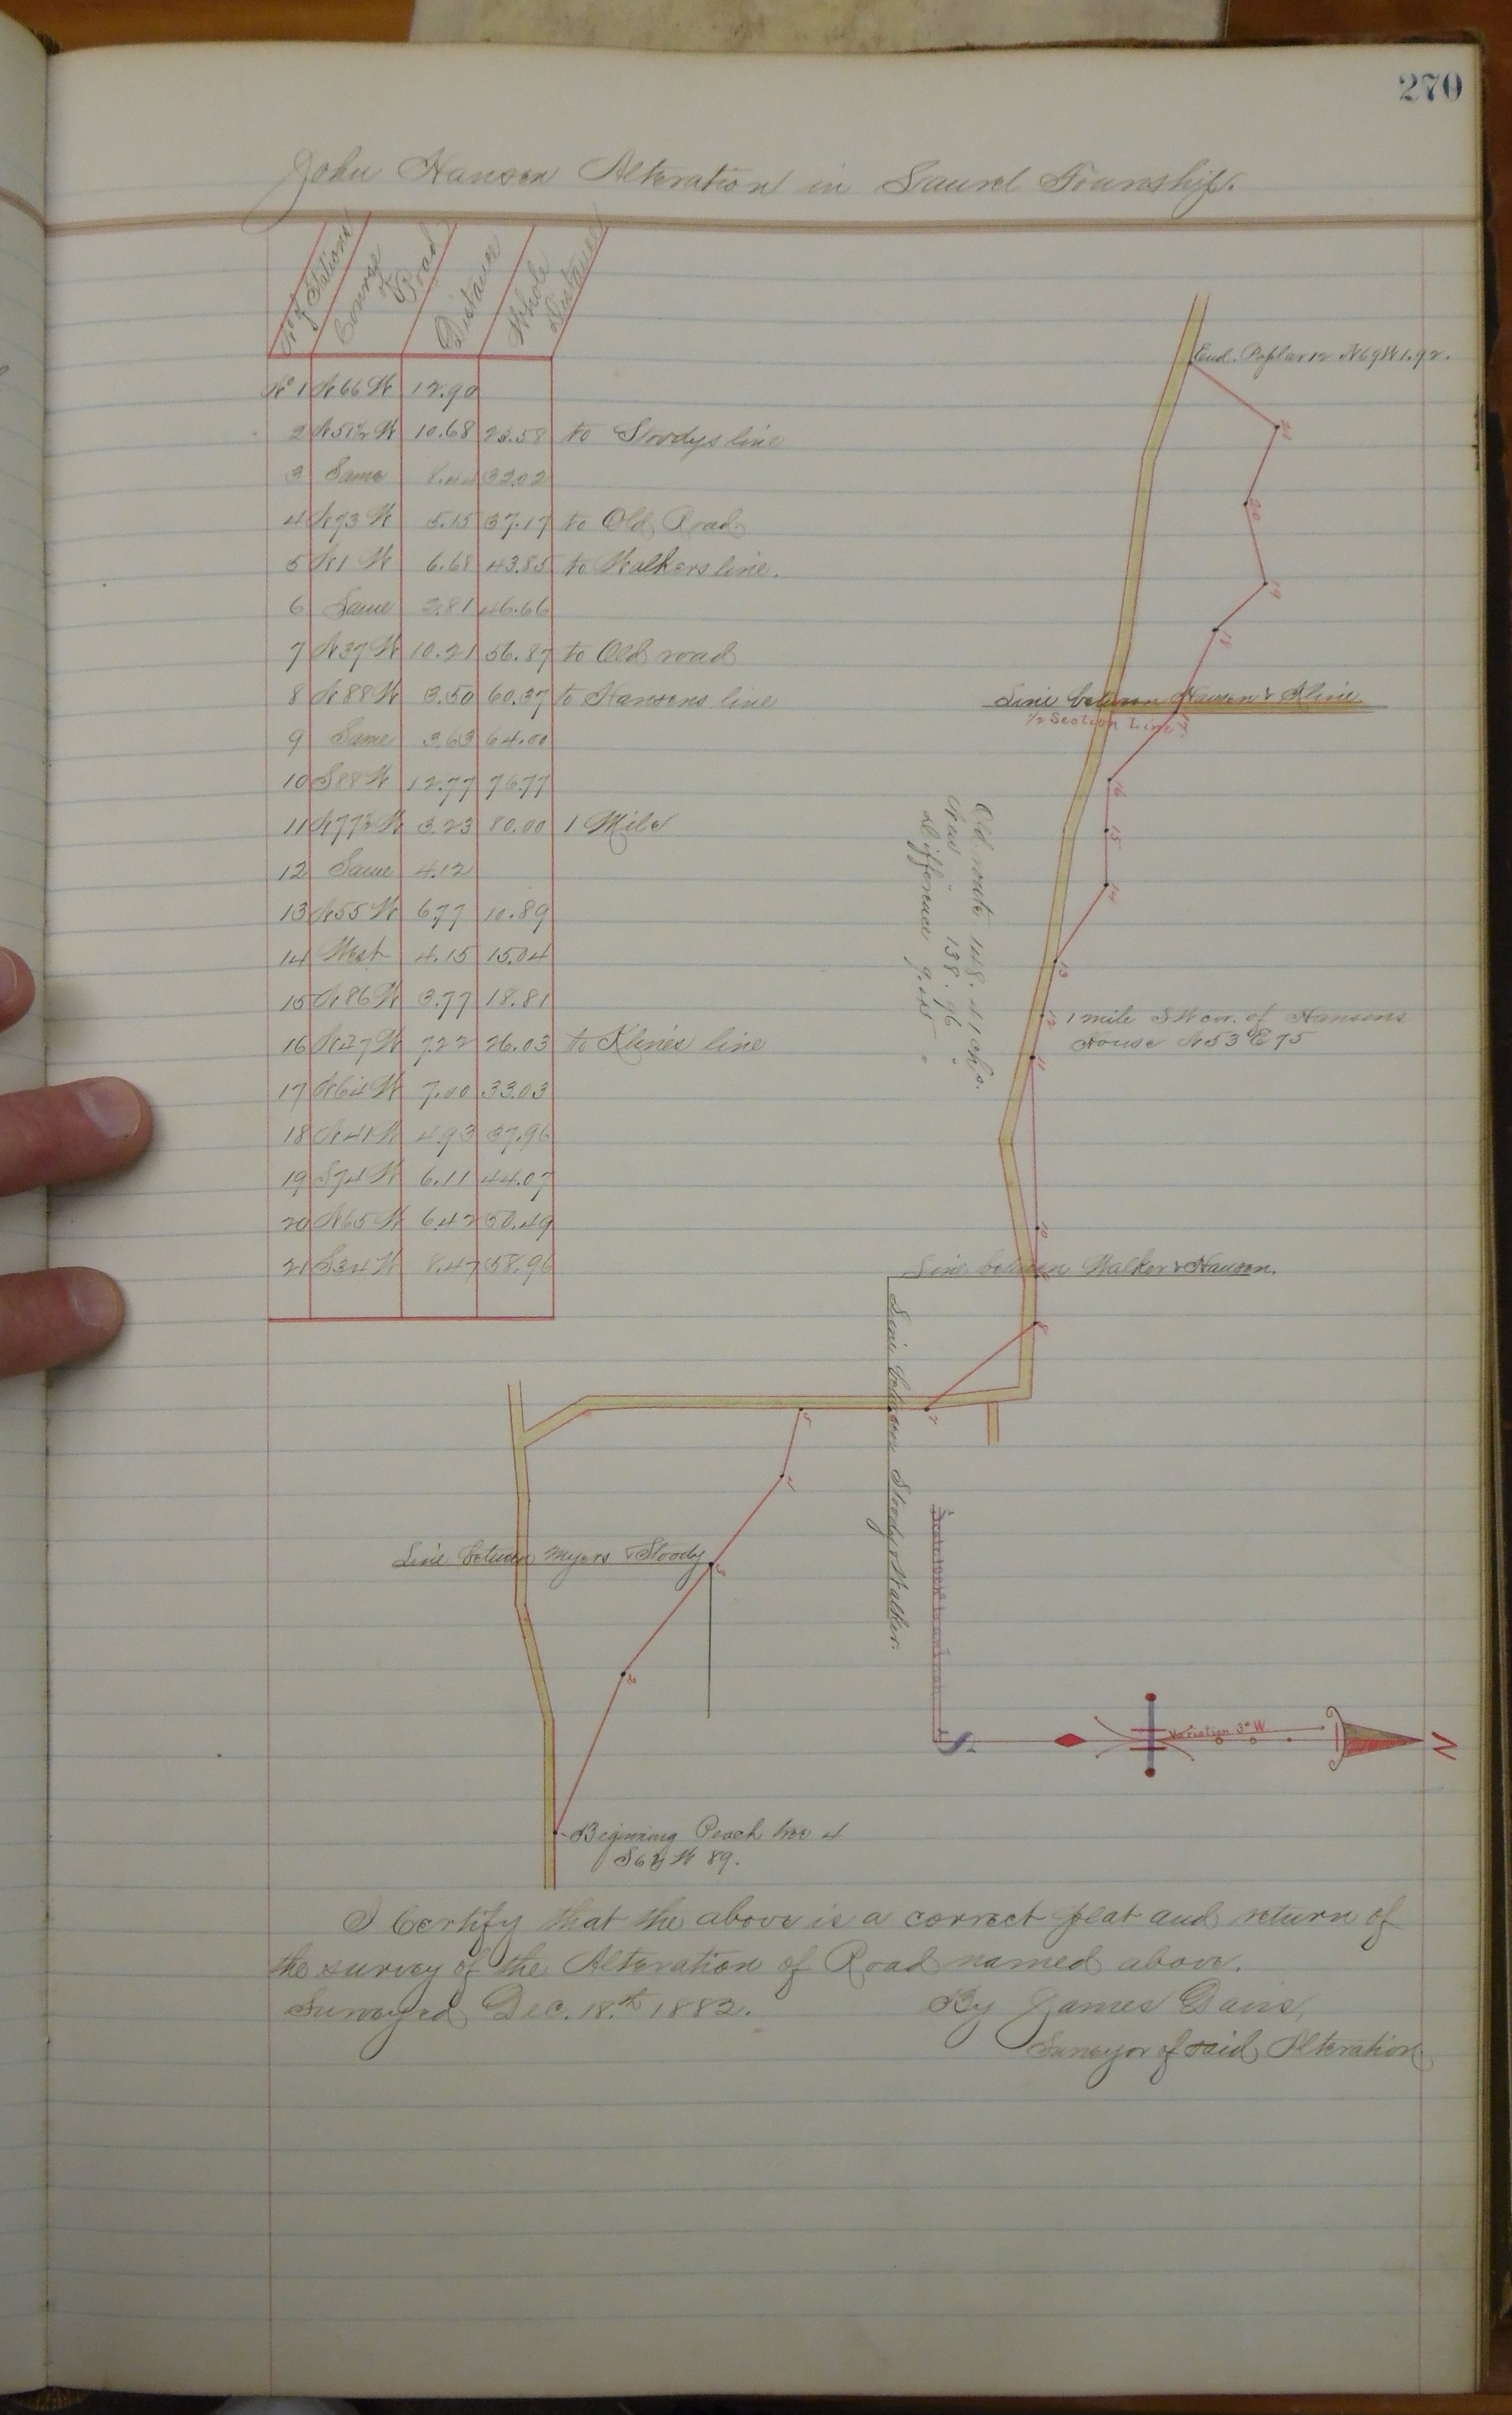 270
John Hanson Alteration in Laurel Township.
No of Stations
Course of Road
Distance
Whole Distance
No 1 N 66 W 12.90
2 N 51½ W 10.68 23.58 to Stoodys line
3 Same 8.44 32.02
4 N 73 W 5.15 37.17 to Old Road
5 N 1 W 6.68 43.85 to Walkers line.
6 Same 2.81 46.66
7 N 37 W 10.21 56.87 to Old road
8 N 88 W 3.50 60.37 to Hansons line
9 Same 3.63 64.00
10 S 88 W 12.77 76.77
11 N 77½ W 3.23 80.00 1 Mile
12 Same 4.12
13 N 55 W 6.77 10.89
14 West 4.15 15.04
15 N 86 W 3.77 18.81
16 N 47 W 7.22 26.03 to Klines line
17 N 64 W 7.00 33.03
18 N 41 W 4.93 37.96
19 S 74 W 6.11 44.07
20 N 65 W 6.42 50.49
21 S 34 W 8.47 58.96
End. Poplar 12 N 69 W 1.92.
21
20
19
18
Line between Hanson & Kline.
½ Section Line
17
16
15
14
13
Old route 148.41 chs.
New 138.96 "
Difference 9.45 "
12
1 mile S W cor. of Hansons
House N 53 E 75
11
10
Line between Walker & Hanson.
8
7
Line between Stoody & Walker.
5
4
Line between Myers & Stoody
3
2
S
Variation 3° W
N
Begining Peach tree 4
S 62 W 89.
I Certify that the above is a correct plat and return of
the survey of the Alteration of Road named above.
Surveyed Dec. 18.th 1882. By James Davis,
Surveyor of said Alteration